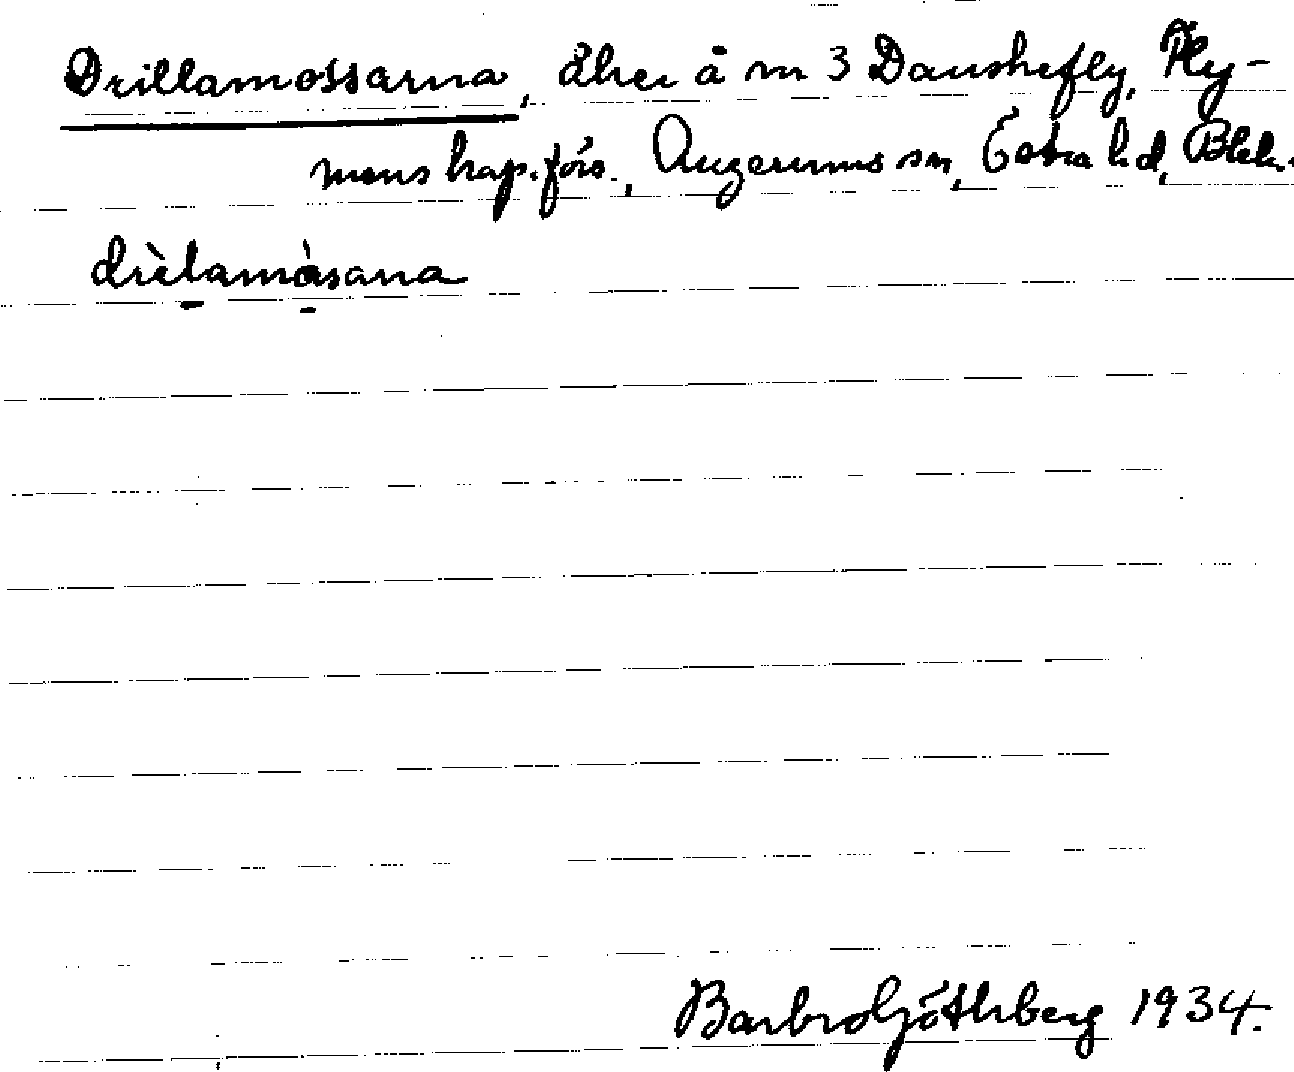 Drillamossarna, åker å m 3 Danskefly, Fly-
mens kap. förs., Augerums sn, Östra hd, Blek.
drìlamàsana
Barbro Göthberg 1934.